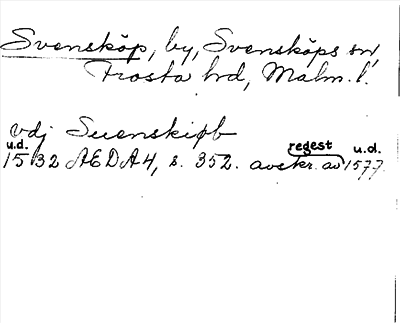 Svensköp, by, Svensköps sn,
Frosta hd, Malm. l.
vdj Suenskiøb
u.d. regest u.d.
1532 AEDA4, s. 352. avskr. av 1577.